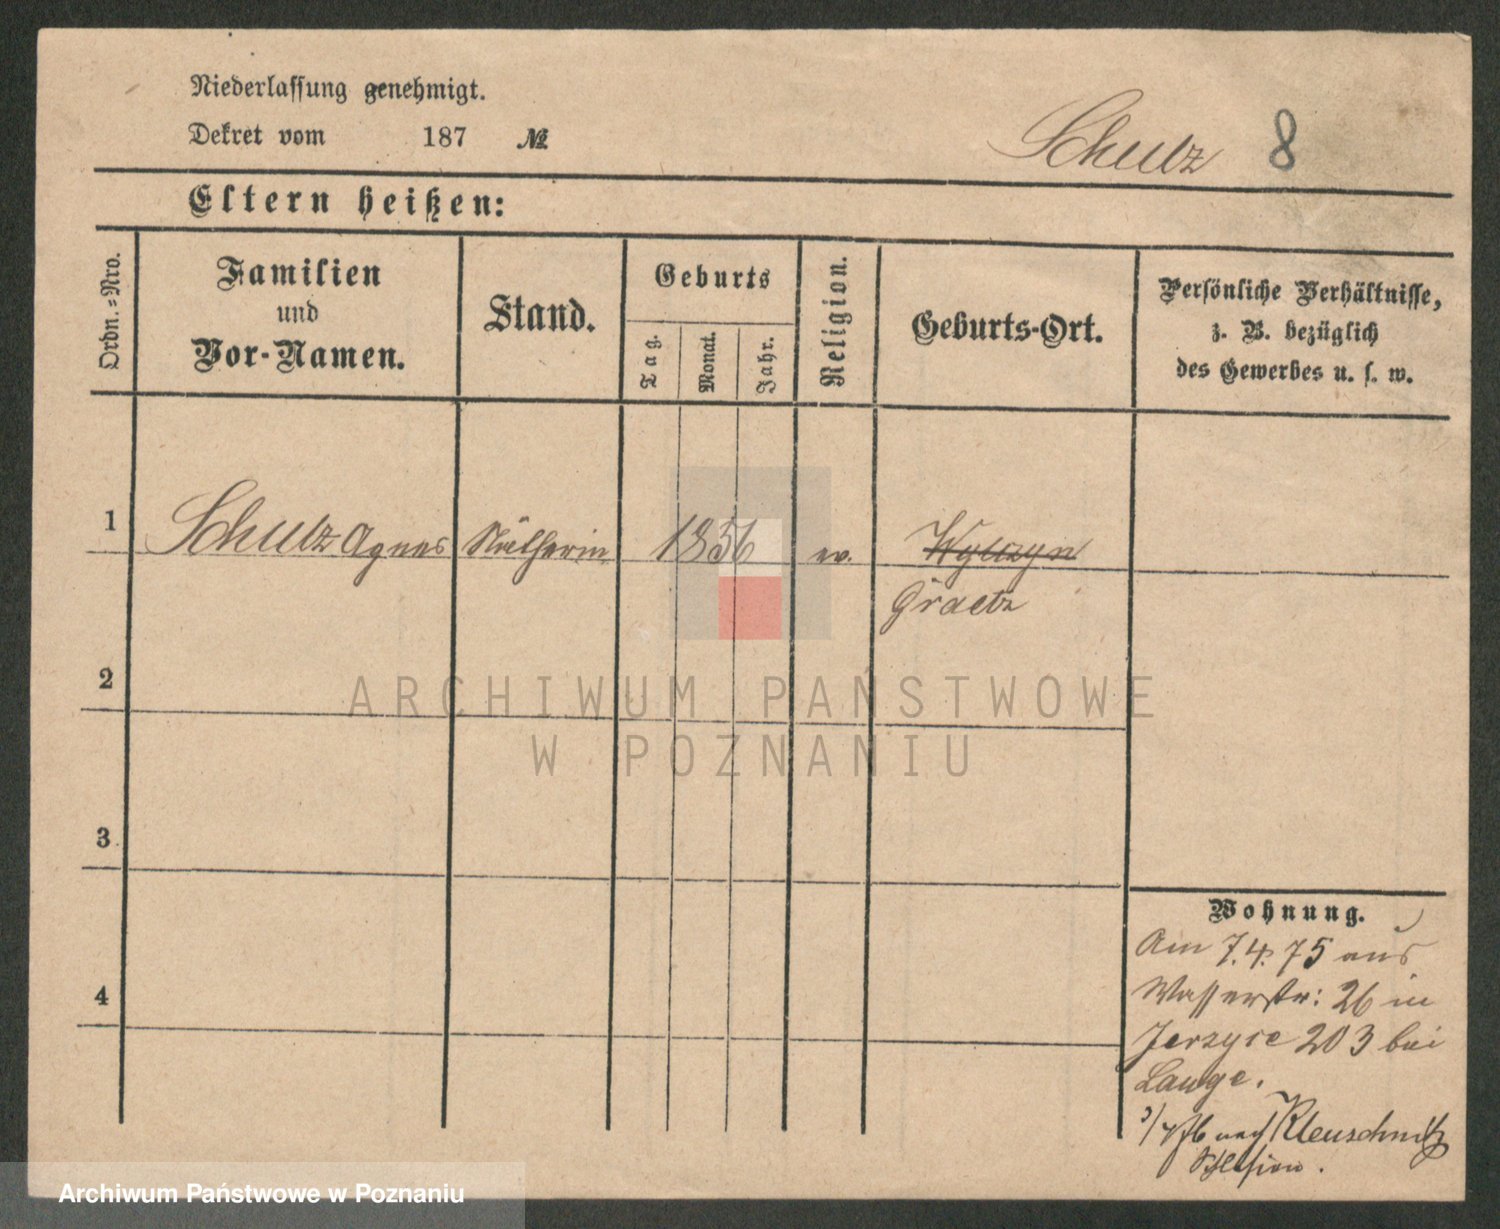 Niederlassung genehmigt.
Dekret vom 187 №
Schulz 8
Eltern heißen:
Ordn.=Nro.
Familien
und
Vor-Namen.
Stand.
Geburts
Tag.
Monat.
Jahr.
Religion.
Geburts-Ort.
Persönliche Verhältnisse,
z. B. bezüglich
des Gewerbes u. s. w.
1 Schulz Agnes Nätherin 1856 ev. Wylczyn
Graetz
2
3
4
Wohnung.
Am 7.4.75 aus
Wasserstr: 26 in
Jerzyce 203 bei
Lange.
3/4 76 nach Kleuschnitz
Schlesien.
ARCHIWUM PAŃSTWOWE
W POZNANIU
Archiwum Państwowe w Poznaniu